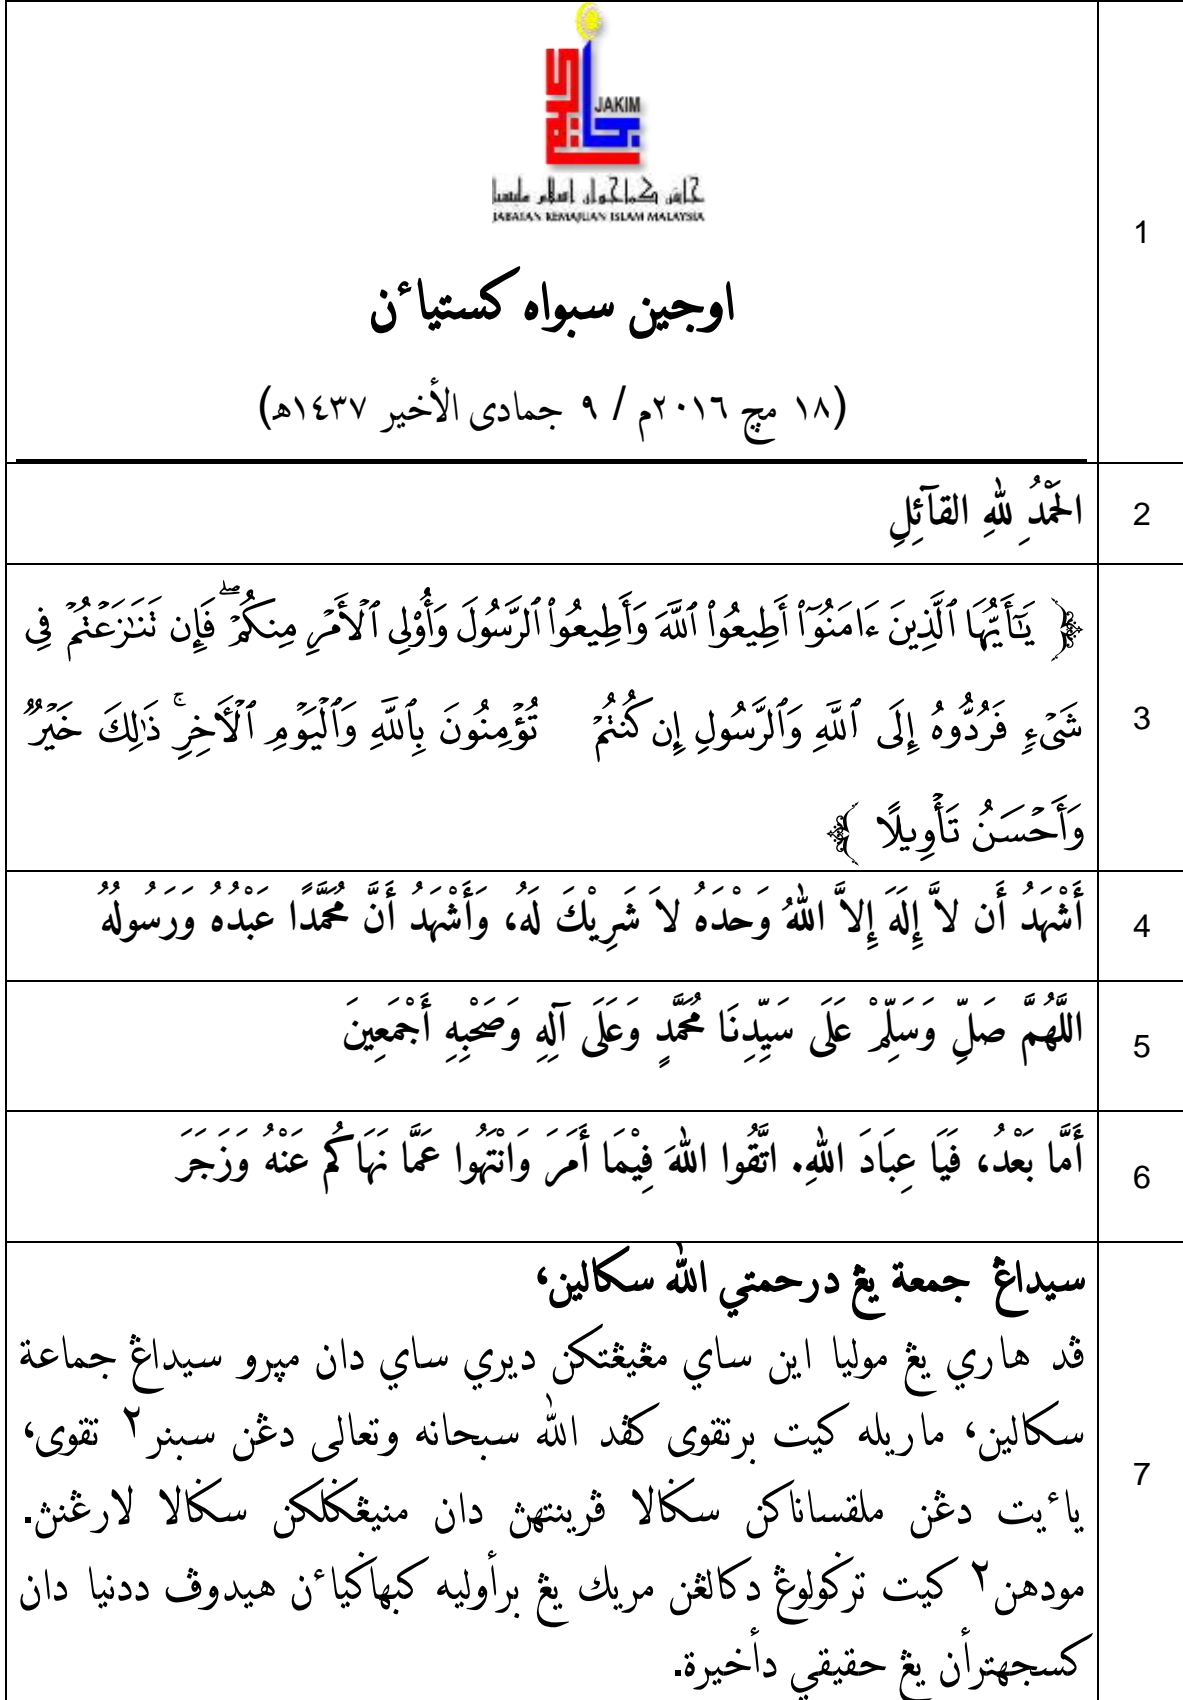 JAKIM
جابتن كماجوان اسلام مليسيا
JABATAN KEMAJUAN ISLAM MALAYSIA
اوجين سبواه كستياٴن
(١٨ مچ ٢٠١٦م / ٩ جمادى الأخير ١٤٣٧ھ)
1
الحَمْدُ لِلّٰهِ القَآئِلِ
2
﴿ يَـٰٓأَيُّهَا ٱلَّذِينَ ءَامَنُوٓا۟ أَطِيعُوا۟ ٱللَّهَ وَأَطِيعُوا۟ ٱلرَّسُولَ وَأُو۟لِى ٱلْأَمْرِ مِنكُمْ ۖ فَإِن تَنَـٰزَعْتُمْ فِى
شَىْءٍ فَرُدُّوهُ إِلَى ٱللَّهِ وَٱلرَّسُولِ إِن كُنتُمْ تُؤْمِنُونَ بِٱللَّهِ وَٱلْيَوْمِ ٱلْـَٔاخِرِ ۚ ذَٰلِكَ خَيْرٌ
وَأَحْسَنُ تَأْوِيلًا ﴾
3
أَشْهَدُ أَن لاَّ إِلَهَ إِلاَّ اللهُ وَحْدَهُ لاَ شَرِيْكَ لَهُ، وَأَشْهَدُ أَنَّ مُحَمَّدًا عَبْدُهُ وَرَسُولُهُ
4
اللَّهُمَّ صَلِّ وَسَلِّمْ عَلَى سَيِّدِنَا مُحَمَّدٍ وَعَلَى آلِهِ وَصَحْبِهِ أَجْمَعِينَ
5
أَمَّا بَعْدُ، فَيَا عِبَادَ اللهِ. اتَّقُوا اللهَ فِيْمَا أَمَرَ وَانْتَهُوا عَمَّا نَهَاكُم عَنْهُ وَزَجَرَ
6
سيداڠ جمعة يڠ درحمتي الله سكالين،
ڤد هاري يڠ موليا اين ساي مڠيڠتكن ديري ساي دان ميرو سيداڠ جماعة
سكالين، ماريله كيت برتقوى كڤد الله سبحانه وتعالى دڠن سبنر٢ تقوى،
ياٴيت دڠن ملقساناكن سݢالا ڤرينتهڽ دان منيڠݢلكن سݢالا لارڠنڽ.
مودهن٢ كيت ترݢولوڠ دكالڠن مريك يڠ برأوليه كبهاݢياٴن هيدوڤ ددنيا دان
كسجهترأن يڠ حقيقي دأخيرة.
7